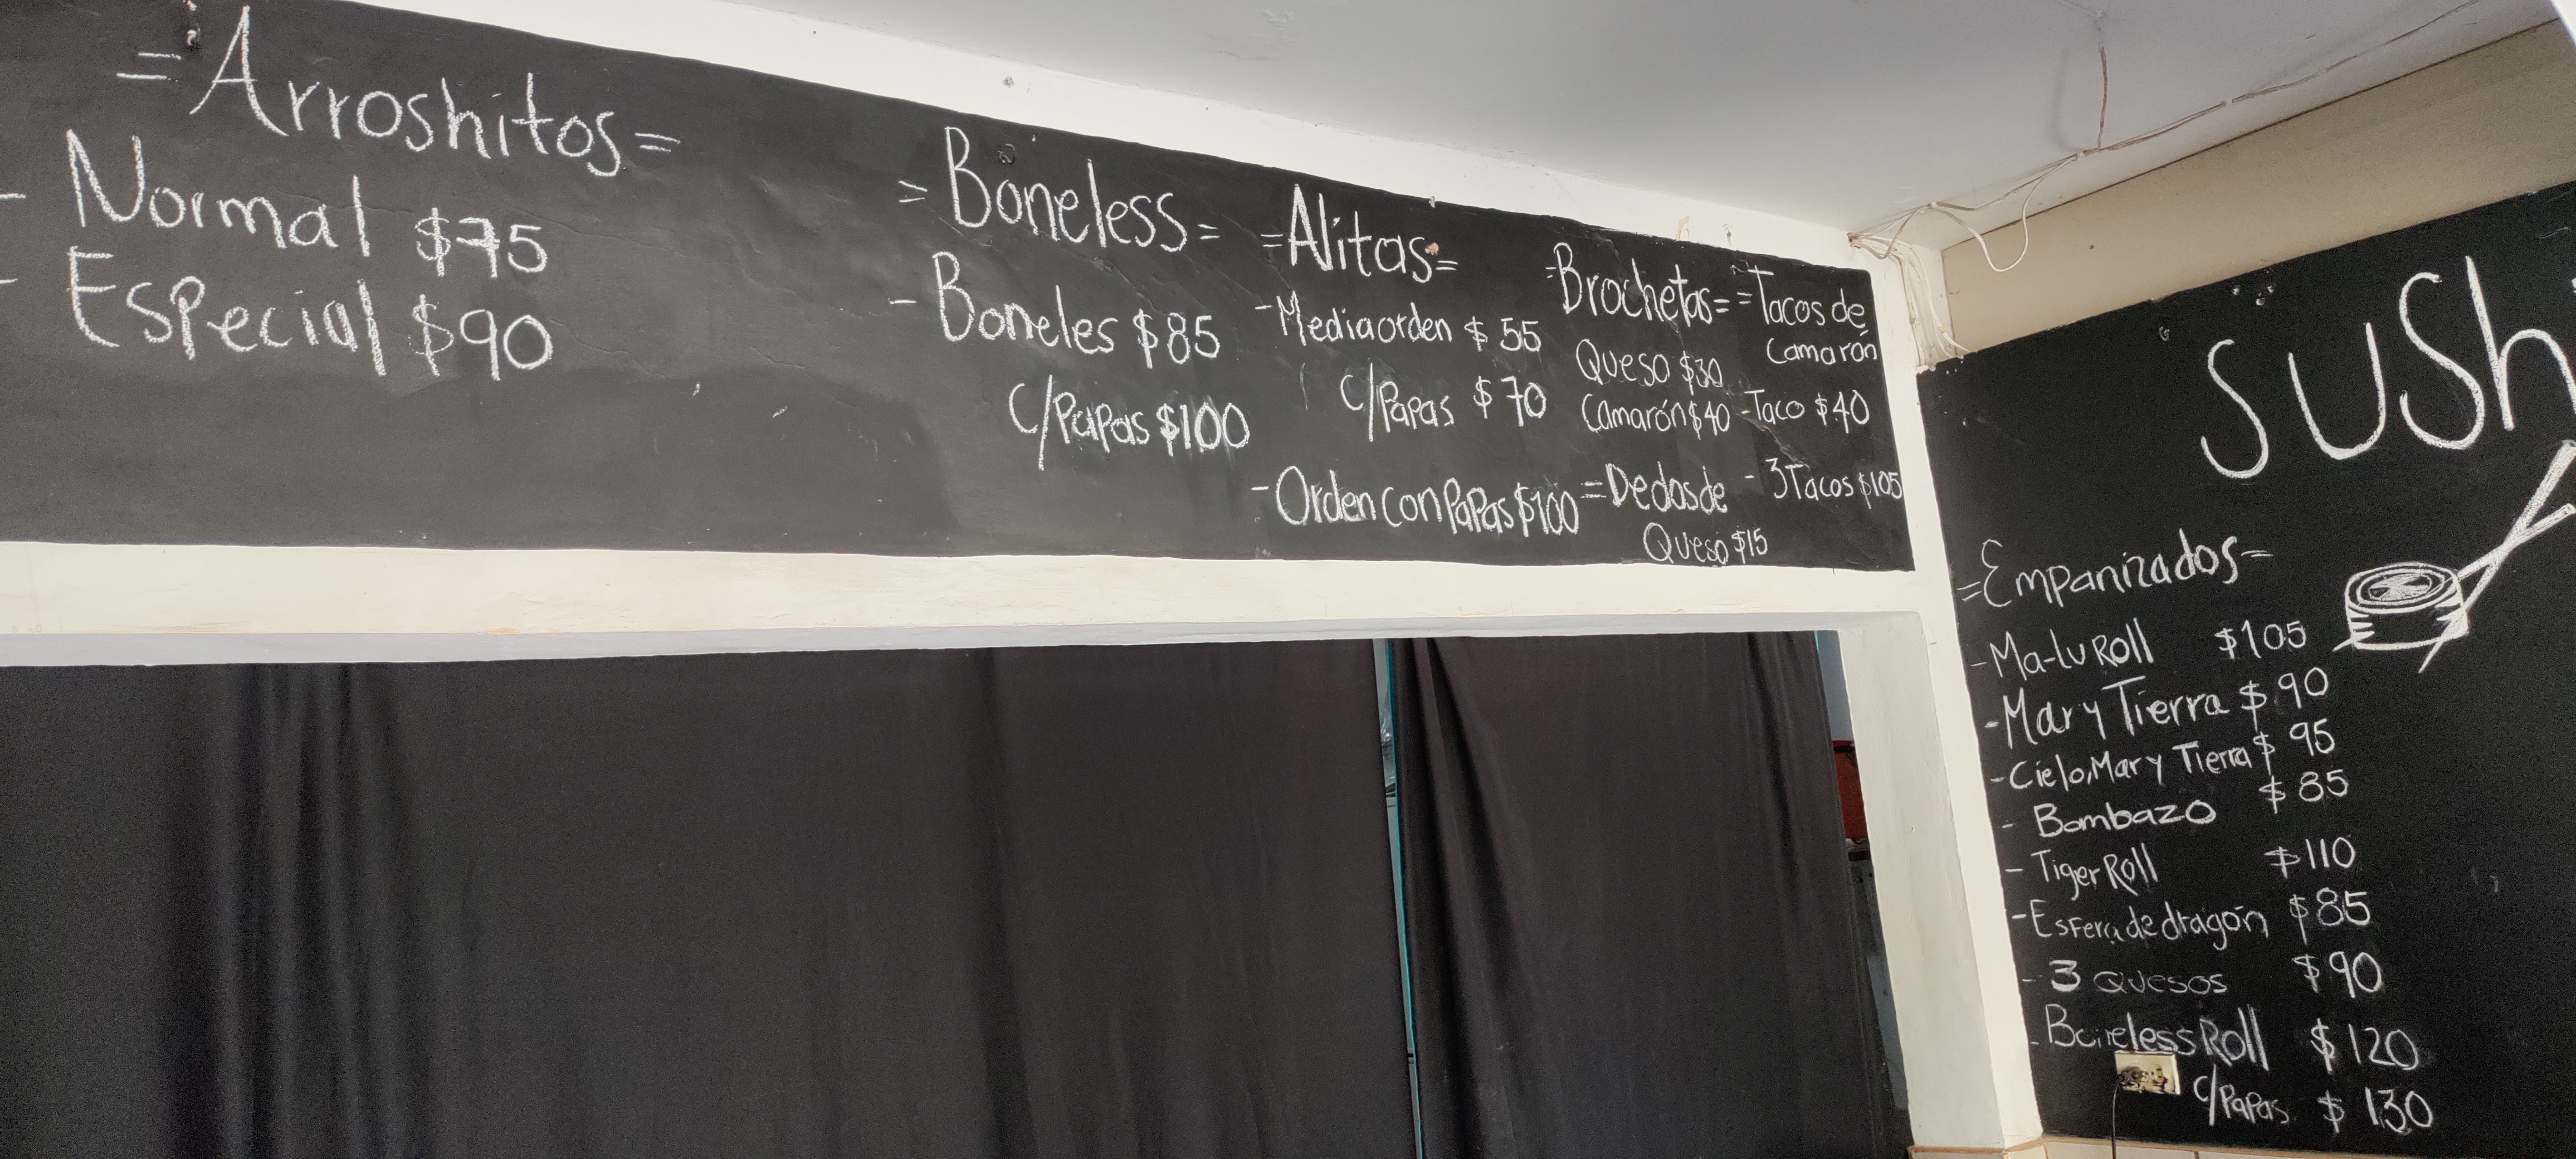 =Arroshitos=
- Normal $75
- Especial $90
=Boneless=
- Boneles $85
C/Papas $100
=Alitas=
- Media orden $55
C/Papas $70
- Orden con Papas $100
=Brochetas=
Queso $30
Camarón $40
=Dedos de
Queso $15
=Tacos de
Camarón
- Taco $40
- 3 Tacos $105
SUSh
=Empanizados=
- Ma-lu Roll $105
- Mar y Tierra $90
- Cielo, Mar y Tierra $95
- Bombazo $85
- Tiger Roll $110
- Esfera de dragón $85
- 3 Quesos $90
- Boneless Roll $120
C/Papas $130